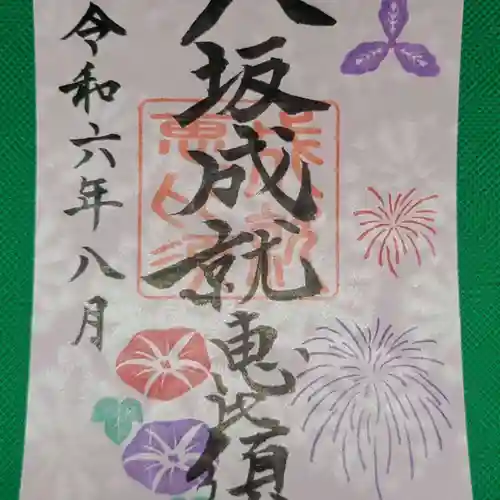 坂成就恵比須
令和六年八月
恵比須